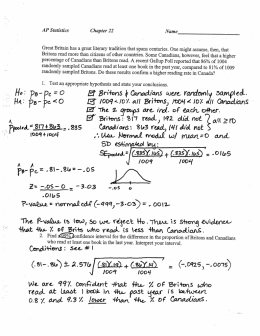 AP Statistics Chapter 22 Name
Great Britain has a great literary tradition that spans centuries. One might assume, then, that
Britons read more than citizens of other countries. Some Canadians, however, feel that a higher
percentage of Canadians than Britons read. A recent Gallup Poll reported that 86% of 1004
randomly sampled Canadians read at least one book in the past year, compared to 81% of 1009
randomly sampled Britons. Do these results confirm a higher reading rate in Canada?
1. Test an appropriate hypothesis and state your conclusions.
Ho: PB-Pc = 0
☑ Britons & Canadians were randomly sampled.
Ha: PB-Pc < 0
☑ 1009 < 10% all Britons, 1004 < 10% all Canadians
☑ The 2 groups are ind. of each other.
☑ Britons: 817 read, 192 did not
Canadians: 863 read, 141 did not } all ≥ 10
Ppooled = 817+863 / 1009+1004 = .835
∴ Use Normal model w/ mean = 0 and
SD estimated by:
SEpooled = √(.835)(.165)/1009 + (.835)(.165)/1004 = .0165
P̂B-P̂c = .81-.86 = -.05
Z = -.05-0 / .0165 = -3.03
-.05 0
P-value = normalcdf(-999,-3.03) = .0012
The P-value is low, so we reject Ho. There is strong evidence
that the % of Brits who read is less than Canadians.
2. Find a 99% confidence interval for the difference in the proportion of Britons and Canadians
who read at least one book in the last year. Interpret your interval.
Conditions: See #1
(.81-.86) ± 2.576 √(.81)(.19)/1009 + (.86)(.14)/1004 = (-.0925, -.0075)
We are 99% confident that the % of Brits who
read at least 1 book in the past year is between
0.8% and 9.3% lower than the % of Canadians.